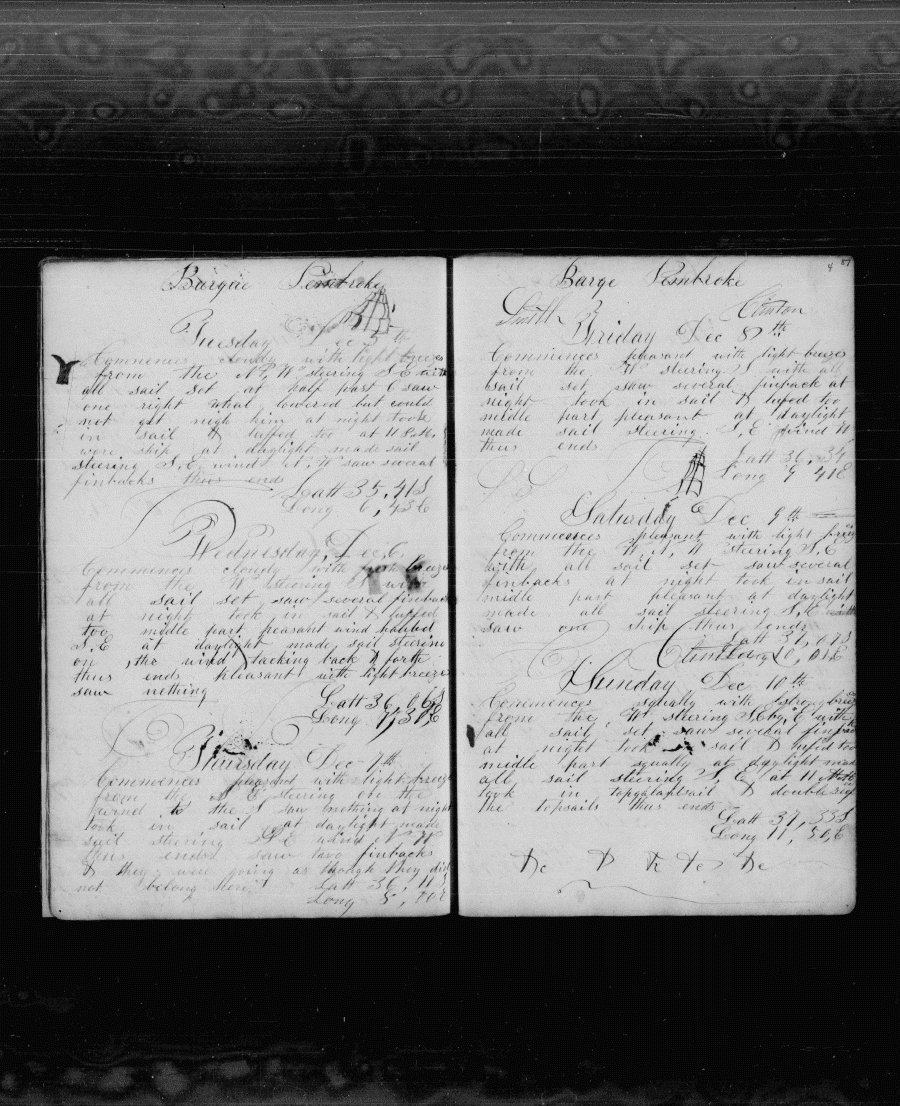 Barque Pembroke
Tuesday Dec 5th
Commences cloudy with light breeze
from the N, W steering S, E with
all sail set at half past 6 saw
one right whal lowered but could
not get nigh him at night took
in sail & luffed too at 11 P.M.
wore ship at daylight made sail
steering S, E wind N, W saw several
finbacks thus ends
Latt 35, 41 S
Long 6, 43 E
Wednesday, Dec 6
Commences cloudy with breeze
from the W steering S with
all sail set saw several finback
at night took in sail & luffed
too middle part pleasant wind hauled
S, E at daylight made sail steering
on the wind tacking back & forth
thus ends pleasant with light breeze
saw nothing
Latt 36, 06 S
Long 7, 30 E
Thursday Dec 7th
Commences pleasant with light breeze
from the S E steering on the
wind to the S saw nothing at night
took in sail at daylight made
sail steering S E wind N W
thus ends saw two finbacks
& they were going as though they did
not belong here
Latt 36, 11 S
Long 8, E
81
Barge Pembroke
Smith Clinton
Friday Dec 8th
Commences pleasant with light breeze
from the W steering S with all
sail set saw several finback at
night took in sail & lufed too
middle part pleasant at daylight
made sail steering S, E wind N
thus ends
Latt 36, 34
Long 9 41 E
Saturday Dec 9th
Commences pleasant with light brieg
from the W, N, W steering S, E
with all sail set saw several
finbacks at night took in sail
middle part pleasant at daylight
made all sail steering S, E with
saw one ship thus ends
Latt 37, 07 S
Long 10, 01 E
Sunday Dec 10th
Commences squally with strong breeze
from the W steering S, E by, E with
all sail set saw several finback
at night took sail & lufed too
middle part squally at daylight mad
all sail steeridg S, E at 11 A M
took in topgalantsail & double reef
the topsails thus ends
Latt 37, 33 S
Long 11, 50, E